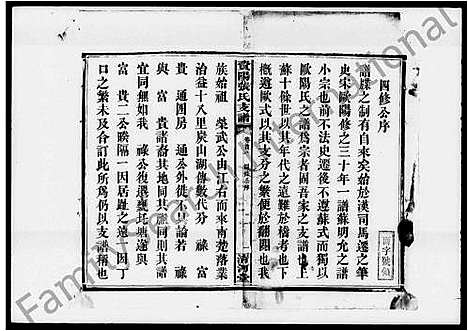 四修公序
譜牒之制有自來矣始於漢司馬遷之筆
史宋歐陽修之三十年一譜蘇明允之譜
小宗也前不法史遷後不遵蘇式而獨以
歐陽氏之譜為宗者固吾家之支譜也上
蘇十餘世以其年代之遠難於稽考也下
概遵歐式以其支分之繁便於翻閱也我
資陽張氏支譜
卷首
清河堂
族始祖 榮武公由江右而來南楚落業
治益十八里炭山湖傳數代分 祿 富
貴 通四房 通公外徙無論若 祿
與 富 貴諸裔其地同其派同則譜
宜同無如我 祿公復遷甕 塘遂與
富 貴二公睽隔一因居趾之遠一因
口之繁未及合訂此所為仍以支譜稱也
FamilySearch International